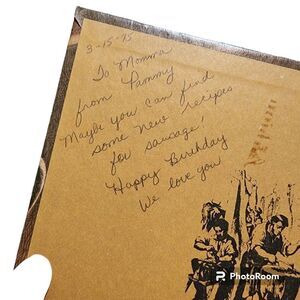 3-15-75
To Momma
from Pammy
Maybe you can find
some new recipes
for sausage!
Happy Birthday
We love you
PhotoRoom